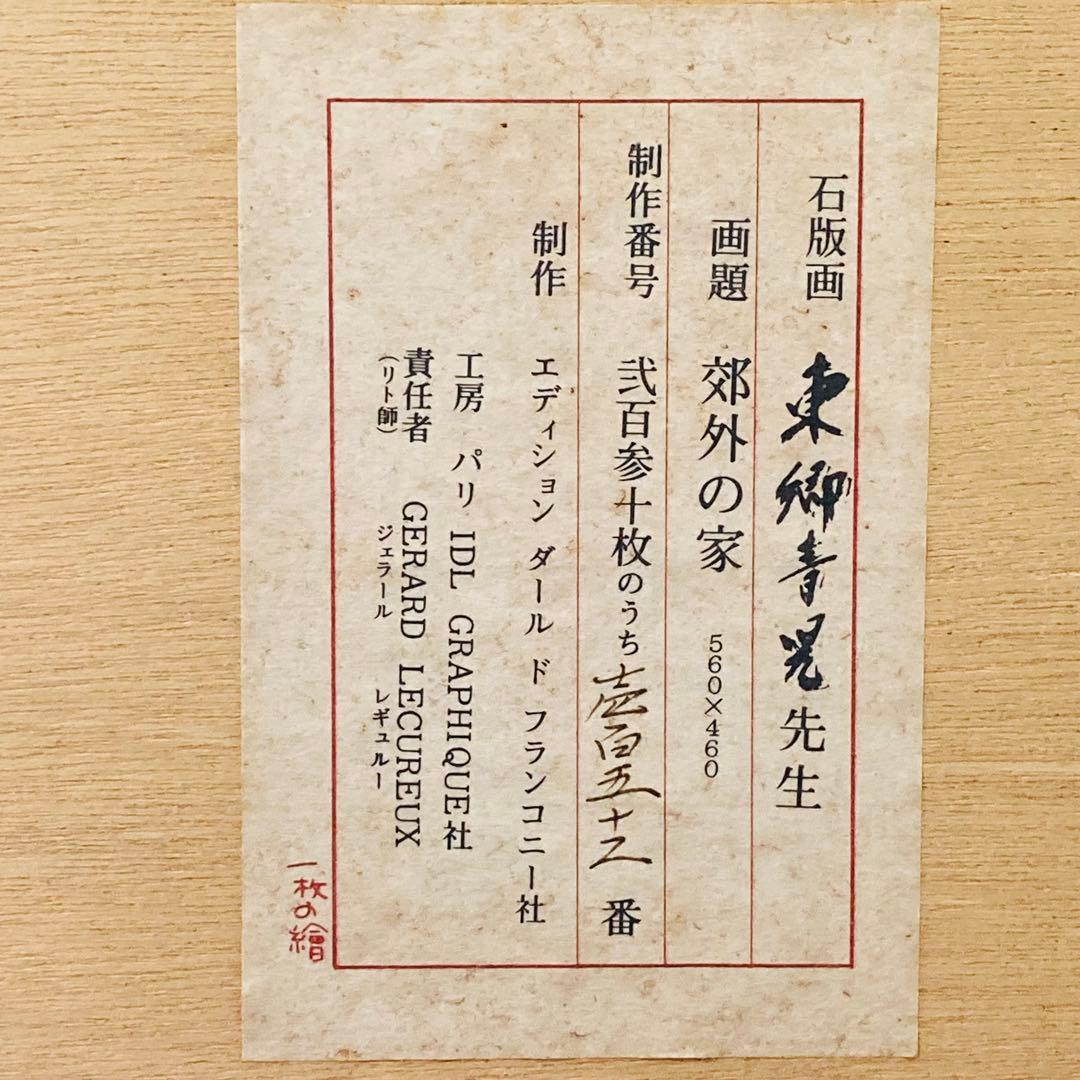 石版画 東郷青児先生
画題 郊外の家 560×460
制作番号 弐百参十枚のうち壱百五十二番
制作 エディション ダール ド フランコニー社
工房 パリ IDL GRAPHIQUE社
責任者 GERARD LECUREUX
(リト師) ジェラール レギュルー
一枚の繪